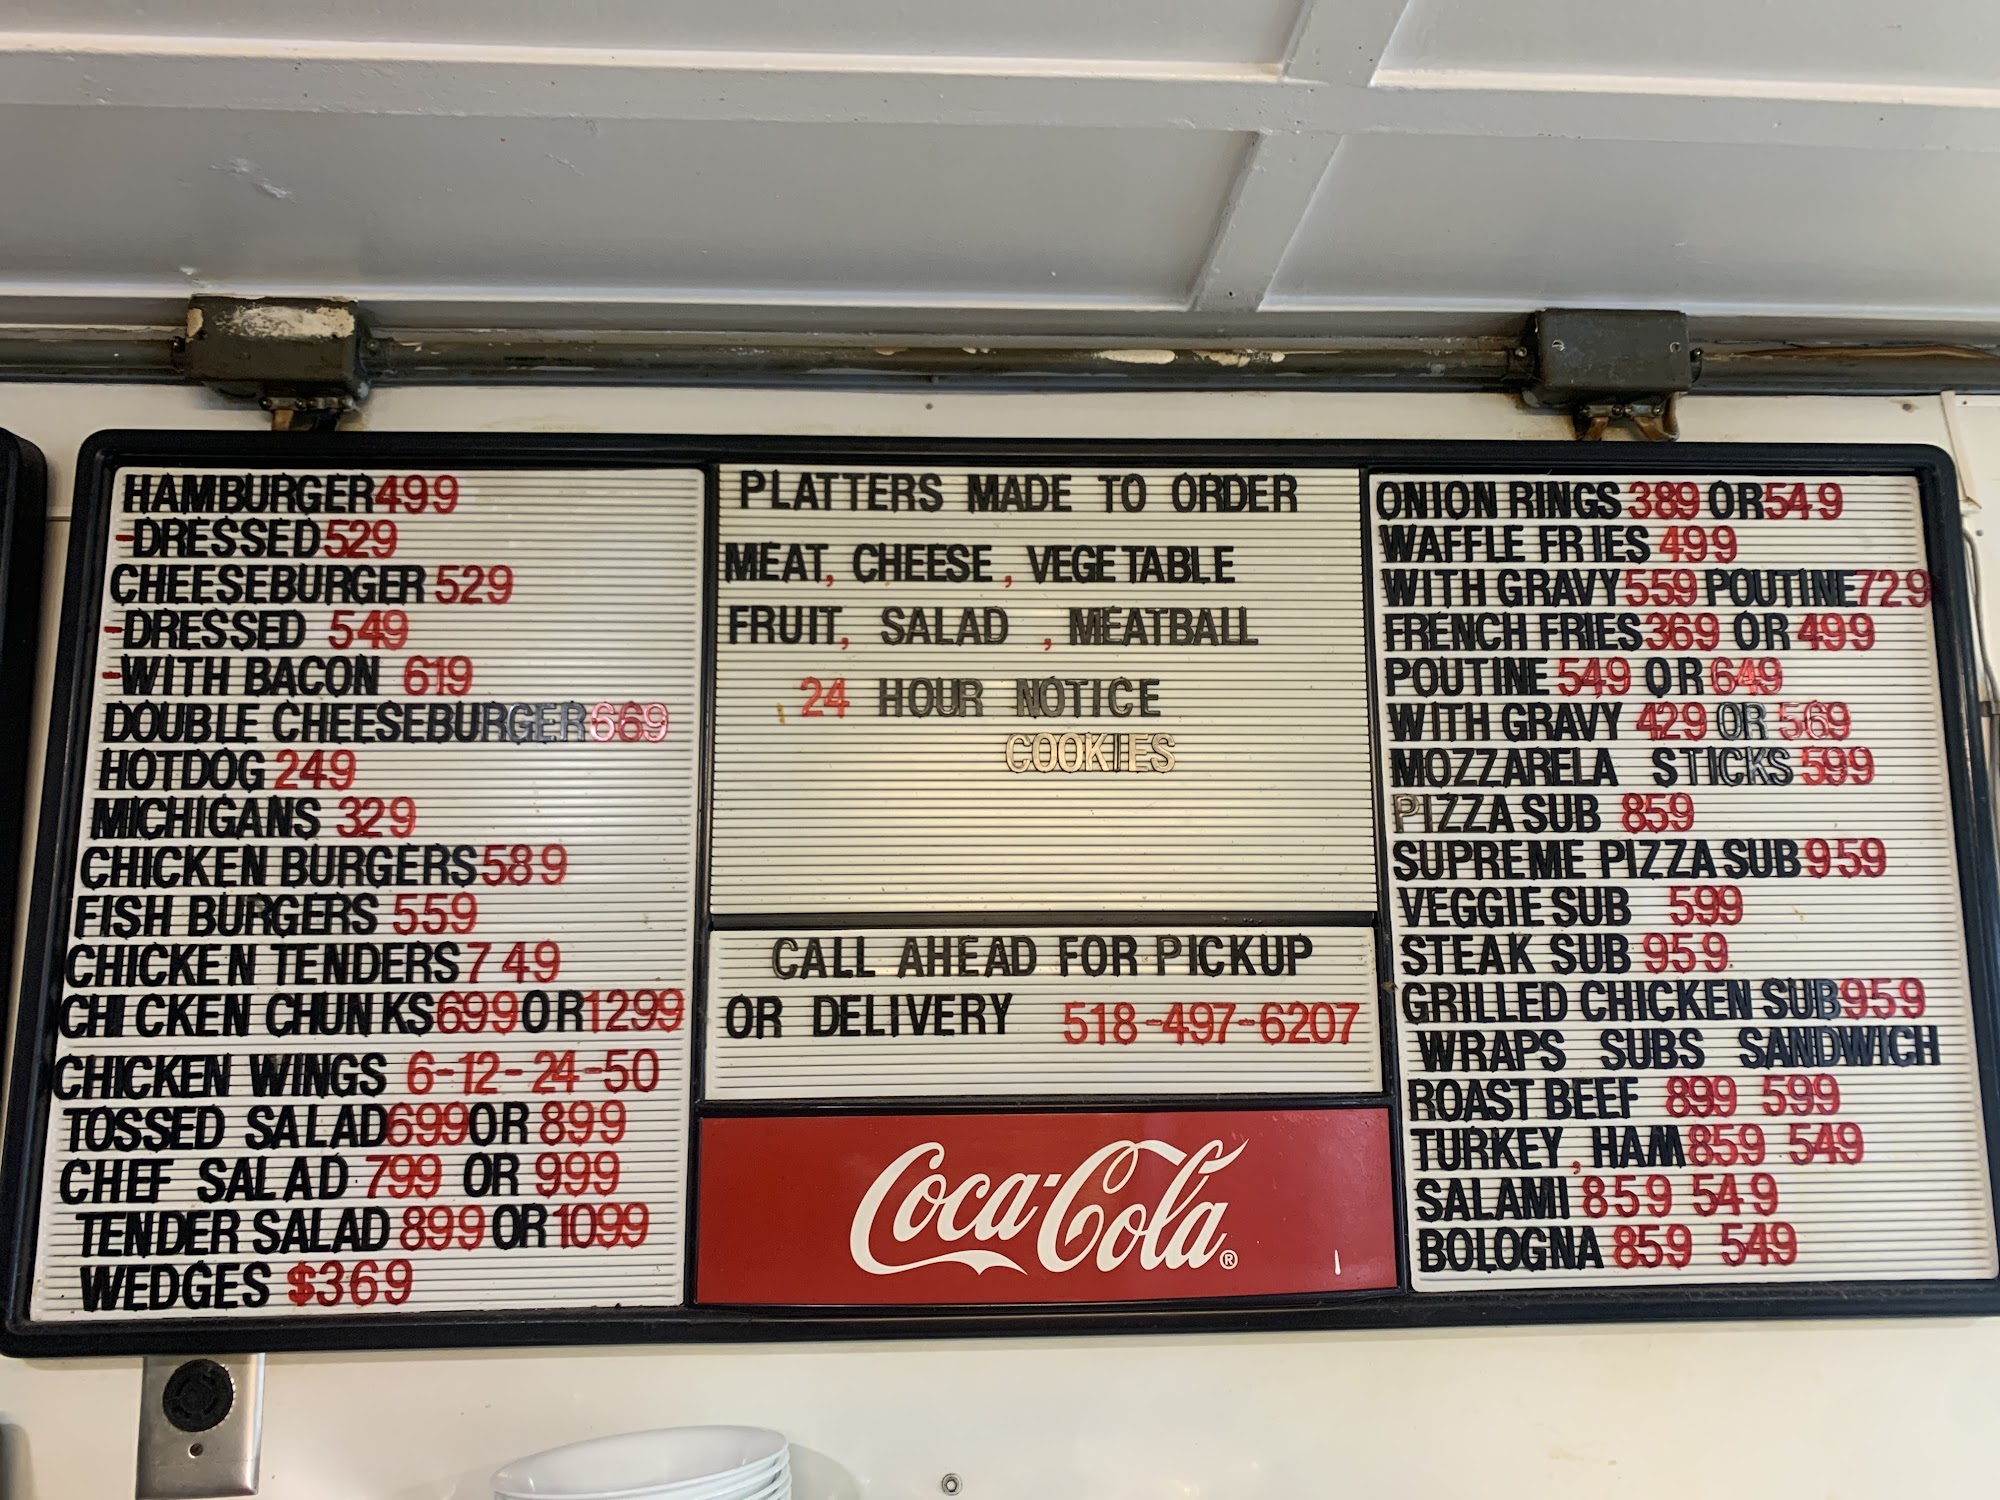 HAMBURGER 499
-DRESSED 529
CHEESEBURGER 529
-DRESSED 549
-WITH BACON 619
DOUBLE CHEESEBURGER 669
HOTDOG 249
MICHIGANS 329
CHICKEN BURGERS 589
FISH BURGERS 559
CHICKEN TENDERS 749
CHICKEN CHUNKS 699 OR 1299
CHICKEN WINGS 6-12-24-50
TOSSED SALAD 699 OR 899
CHEF SALAD 799 OR 999
TENDER SALAD 899 OR 1099
WEDGES $369
PLATTERS MADE TO ORDER
MEAT, CHEESE, VEGETABLE
FRUIT, SALAD , MEATBALL
24 HOUR NOTICE
COOKIES
CALL AHEAD FOR PICKUP
OR DELIVERY 518-497-6207
Coca-Cola®
ONION RINGS 389 OR 549
WAFFLE FRIES 499
WITH GRAVY 559 POUTINE 729
FRENCH FRIES 369 OR 499
POUTINE 549 OR 649
WITH GRAVY 429 OR 569
MOZZARELA STICKS 599
PIZZA SUB 859
SUPREME PIZZA SUB 959
VEGGIE SUB 599
STEAK SUB 959
GRILLED CHICKEN SUB 959
WRAPS SUBS SANDWICH
ROAST BEEF 899 599
TURKEY, HAM 859 549
SALAMI 859 549
BOLOGNA 859 549